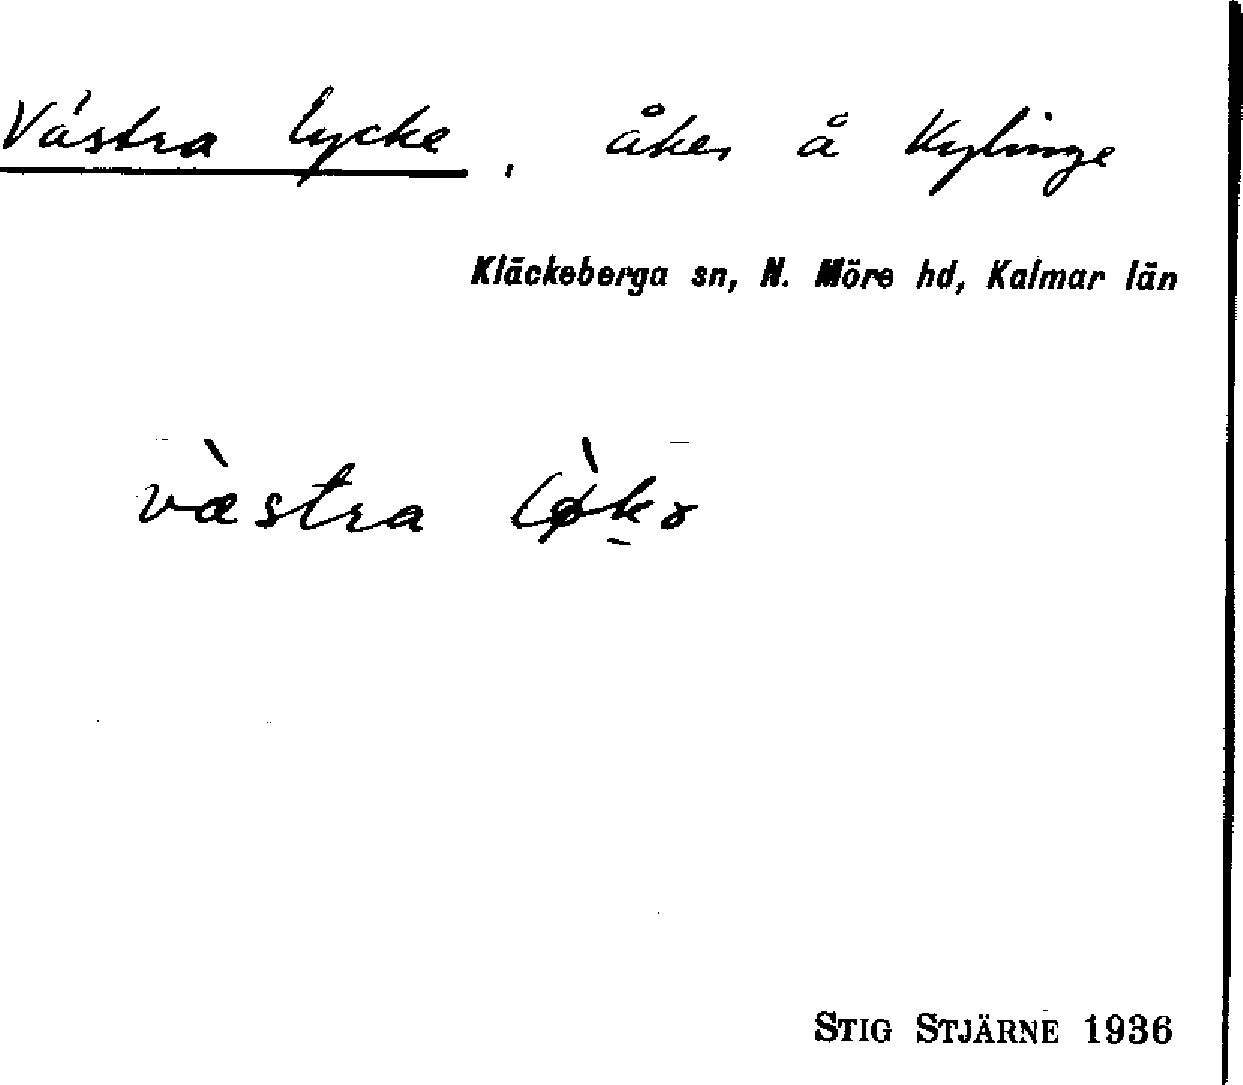 Västra lycke, åker å Kylinge
Kläckeberga sn, N. Möre hd, Kalmar län
væ̀stra
STIG STJÄRNE 1936